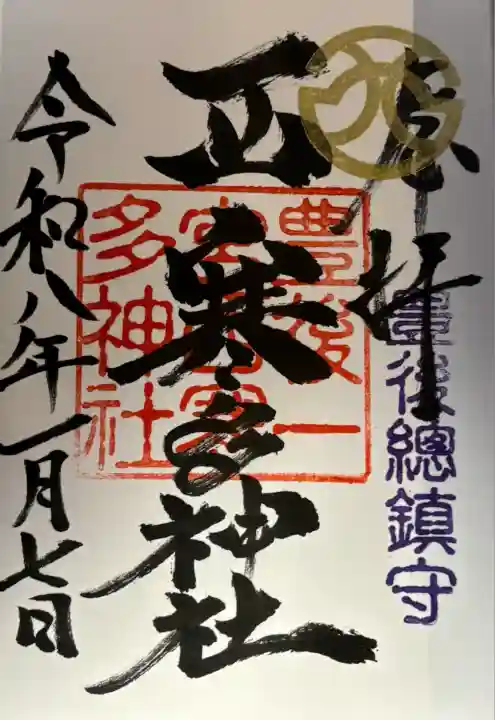 奉拝
豊後總鎮守
西寒多神社
豊後一
宮西寒
多神社
令和八年一月七日